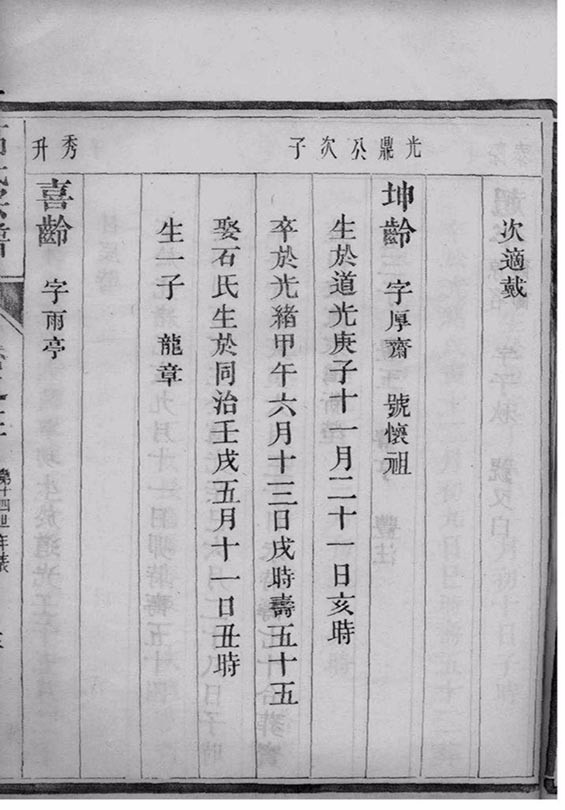 次適戴
光鼎公次子
坤齡 字厚齋 號懷祖
生於道光庚子十一月二十一日亥時
卒於光緒甲午六月十三日戌時壽五十五
娶石氏生於同治壬戌五月十一日丑時
生一子 龍章
秀升
喜齡 字雨亭
第十四世年表